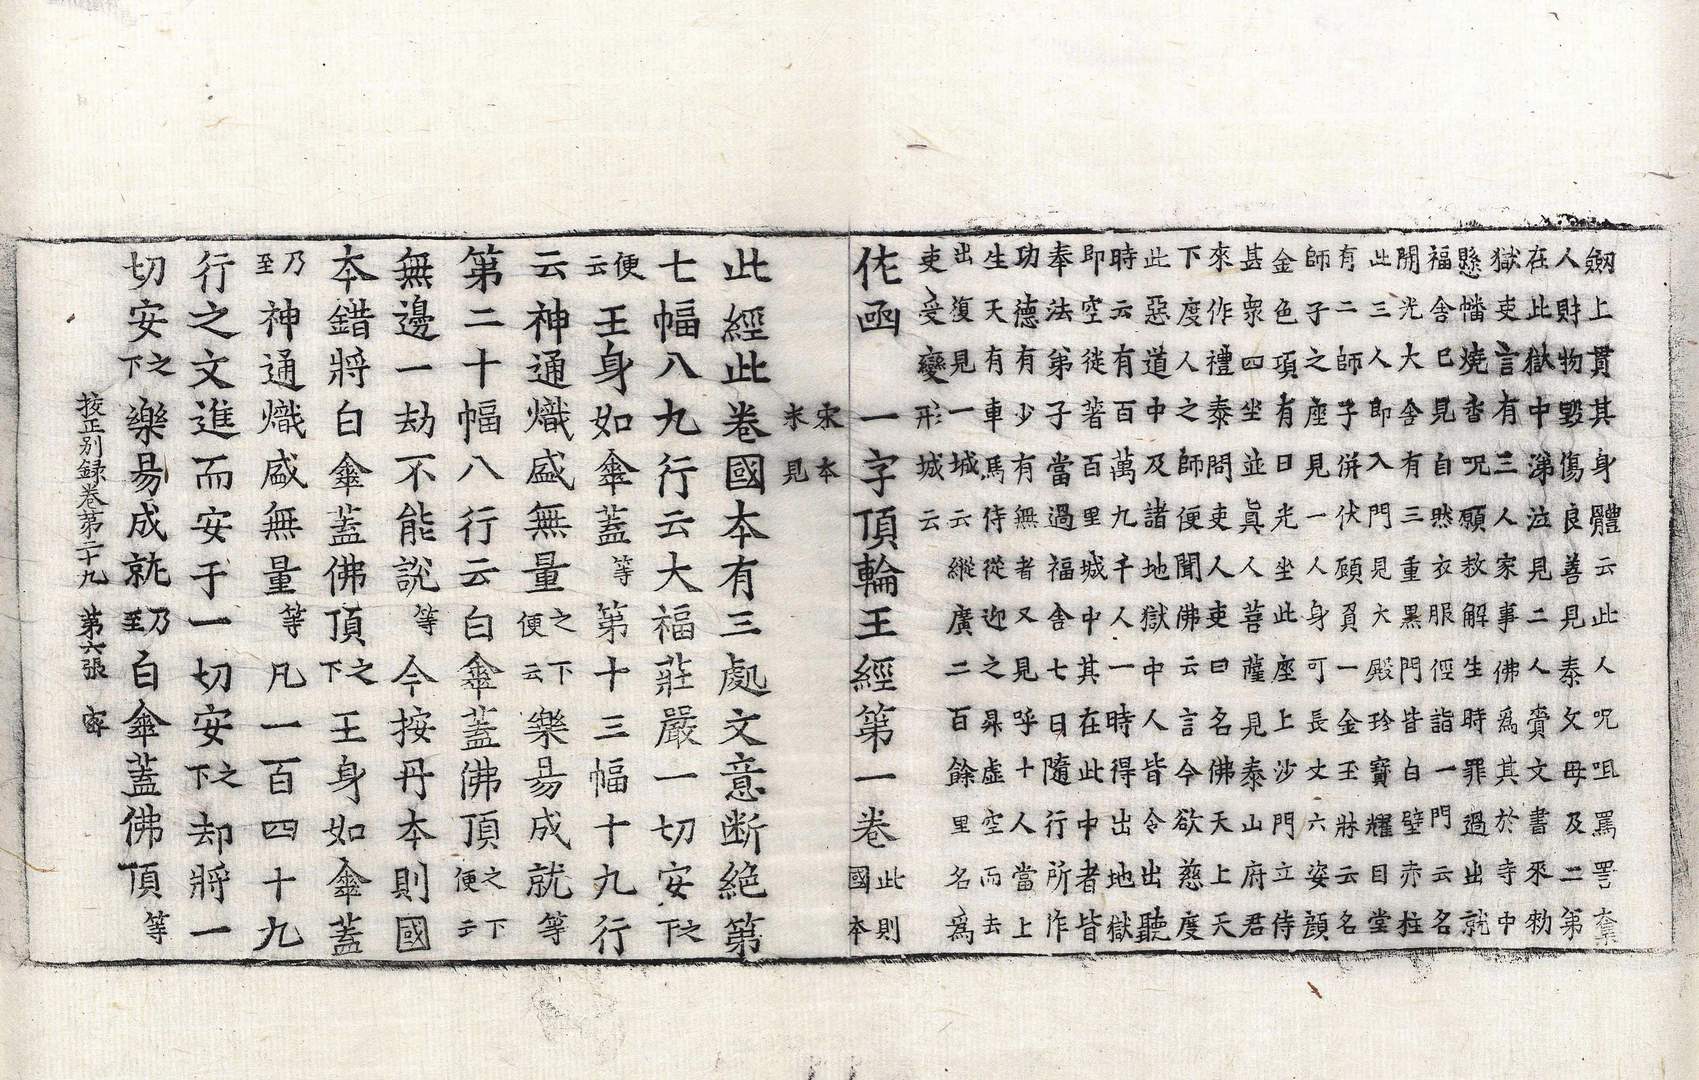 劒上貫其身體云此人呪咀罵詈奪
人財物毀傷良善見泰父母及二第
在此獄中涕泣見二人賷文書來勑
獄吏言有三人家事佛爲其於寺中
懸幡燒香呪願救解生時罪過出就
福舍已見自然衣服徑詣一門云名
開光大舍有三重黑門皆白壁赤柱
此三人即入門見大殿珍寶耀目堂
有二師子併伏顧負一金玉牀云名
師子之座見一人身可長丈六姿顏
金色項有日光坐此座上沙門立侍
甚衆四坐並眞人菩薩見泰山府君
來作禮泰問吏人吏曰名佛天上天
下度人之師便聞佛云言今欲慈度
此惡道中及諸地獄中人皆令出聽
時云有百萬九千人一時得出地獄
即空徙著百里城中其在此中者皆
奉法弟子當過福舍七日隨行所作
功德有少有無者又見呼十人當上
生天有車馬侍從迎之昇虛空而去
出復見一城云縱廣二百餘里名爲
吏受變形城云
佐函 一字頂輪王經第一卷 此則國本
宋本未見
此經此卷國本有三處文意断絶第
七幅八九行云大福莊嚴一切安之下
便云王身如傘蓋等第十三幅十九行
云神通熾盛無量之下便云樂易成就等
第二十幅八行云白傘蓋佛頂之下便云
無邊一劫不能説等今按丹本則國
本錯將白傘蓋佛頂之下王身如傘蓋
乃至神通熾盛無量等凡一百四十九
行之文進而安于一切安之下却將一
切安之下樂易成就乃至白傘蓋佛頂等
挍正別録卷第二十九 第六張